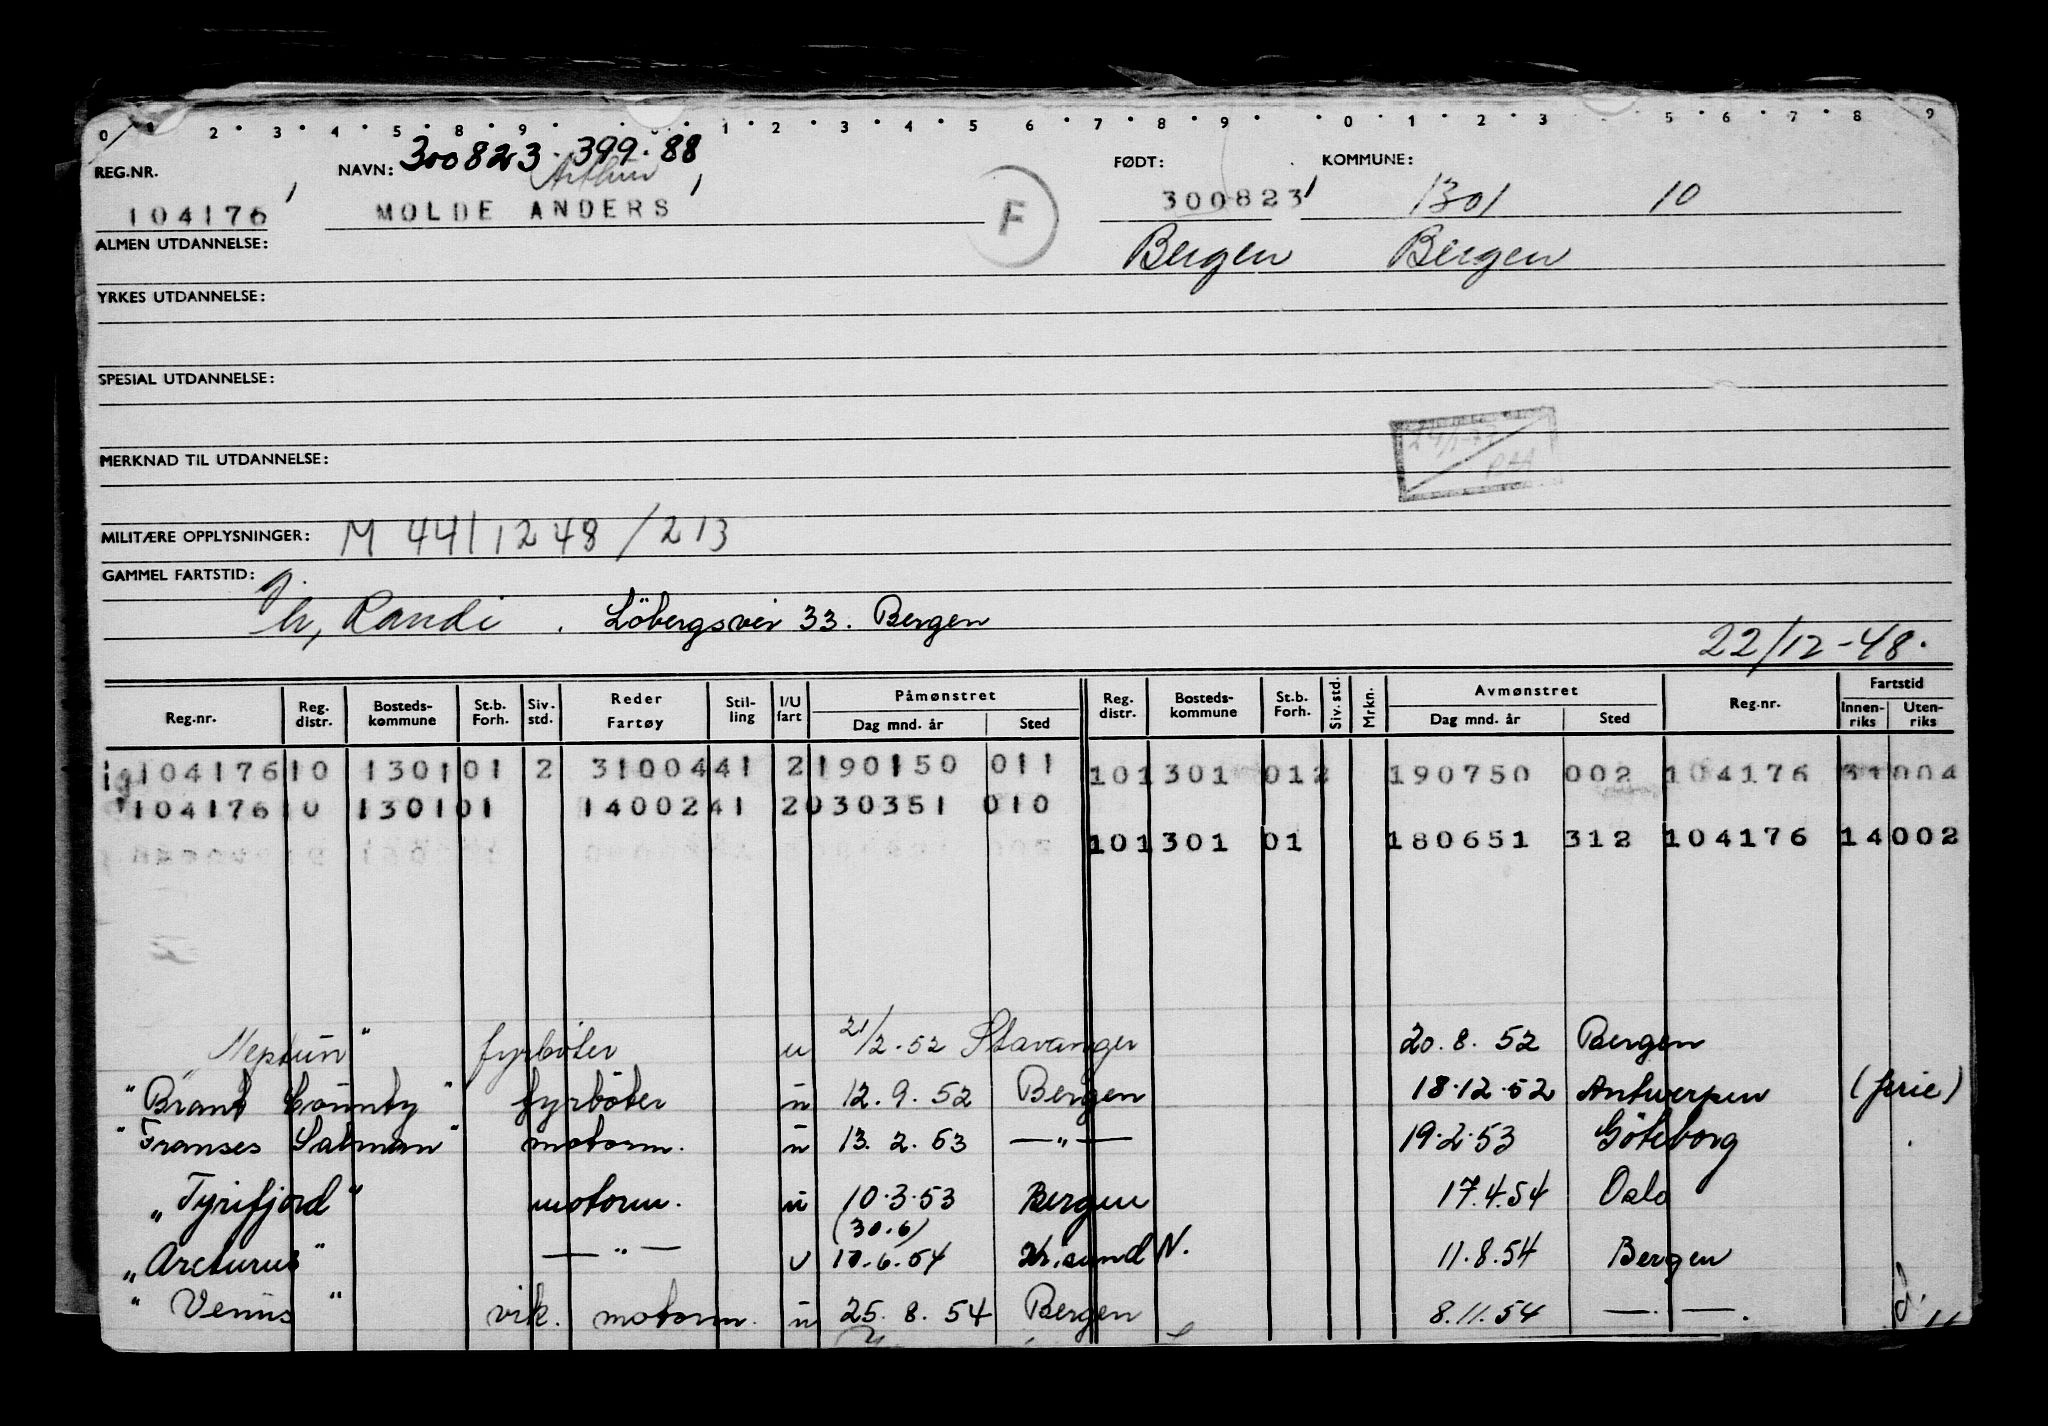 0 2 3 4 5 8 9 1 2 3 4 5 6 7 8 9 0 1 2 3 5 6 7 8 9
REG.NR. NAVN: 300823.399.88 FØDT: KOMMUNE:
Arthur
104176 MOLDE ANDERS F 300823 1301 10
ALMEN UTDANNELSE: Bergen Bergen
YRKES UTDANNELSE:
SPESIAL UTDANNELSE:
MERKNAD TIL UTDANNELSE:
MILITÆRE OPPLYSNINGER: M 4411248/213
GAMMEL FARTSTID:
h, Randi . Löbergsvei 33. Bergen
22/12-48.
Reg.nr. Reg. distr. Bosteds-kommune St.b. Forh. Siv. std. Reder Fartøy Stil-ling I/U fart Påmønstret Dag mnd. år Sted Reg. distr. Bosteds-kommune St.b. Forh. Siv. std. Mrkn. Avmønstret Dag mnd. år Sted Reg.nr. Fartstid Innen-riks Uten-riks
104176 10 1301 01 2 3100441 2 190150 011 10 1301 012 190750 002 104176 31004
104176 10 1301 01 1400241 2 030351 010
10 1301 01 180651 312 104176 14002
Neptun" fyrböter u 21/2.52 Stavanger 20.8.52 Bergen
"Brant County" fyrböter u 12.9.52 Bergen 18.12.52 Antwerpen (ferie)
"Franses Salman" motorm. u 13.2.53 —"— 19.2.53 Göteborg
"Tyrifjord" motorm. u 10.3.53 Bergen 17.4.54 Oslo
(30.6)
"Arcturus" —"— u 10.6.54 Kr.sund N. 11.8.54 Bergen
"Venus" vik. motorm. u 25.8.54 Bergen 8.11.54 — —.